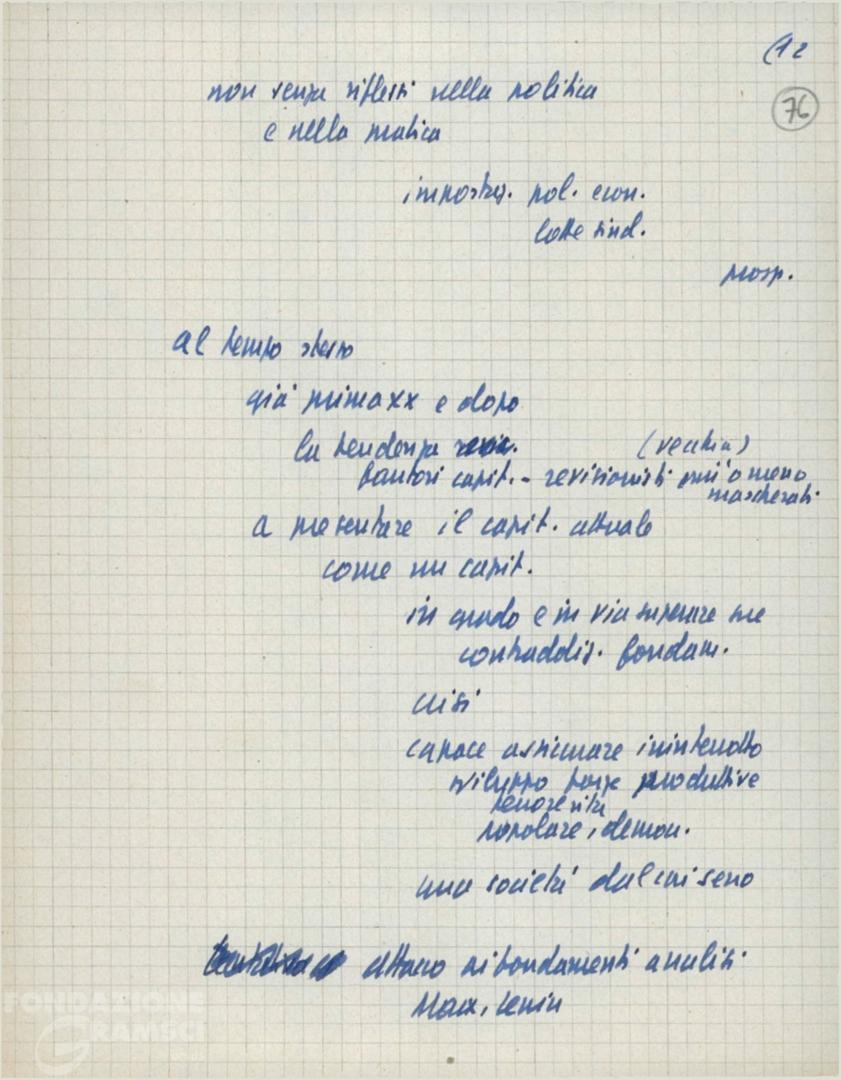 (12
76
non senza riflessi nella politica
e nella pratica
impostaz. pol. econ.
lotte sind.
prosp.
al tempo stesso
già prima xx e dopo
la tendenza (vecchia)
fautori capit. - revisionisti più o meno
mascherati.
a presentare il capit. attuale
come un capit.
in grado e in via superare sue
contraddiz. fondam.
crisi
capace assicurare ininterrotto
sviluppo forze produttive
tenore vita
popolare, democr.
una società dal cui seno
attacco ai fondamenti analisi
Marx, Lenin
FONDAZIONE
GRAMSCI